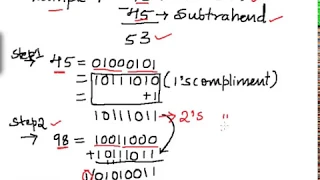 45 → Subtrahend ✓
53 ✓
Step1 → 45 = 01000101
= 10111010 (1's compliment)
+1
10111011 → 2's "
Step2 ✓
→ 98 = 10011000
+10111011
① 01010011